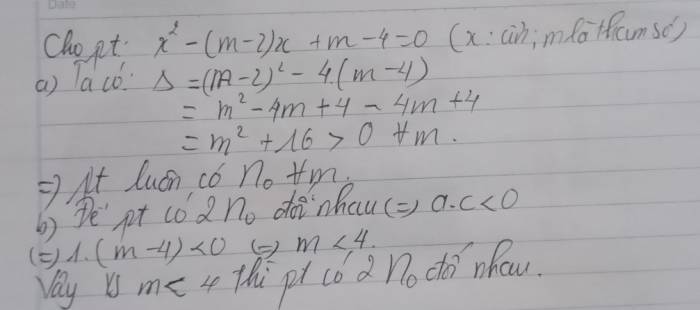 Cho pt: x² - (m-2)x + m - 4 = 0 (x: ẩn; m là tham số)
a) Ta có: Δ = (m-2)² - 4.(m-4)
= m² - 4m + 4 - 4m + 4
= m² + 16 > 0 ∀m.
=) Pt luôn có n₀ ∀m.
b) Để pt có 2 n₀ đối nhau (=) a.c < 0
(=) 1.(m-4) < 0 (=) m < 4.
Vậy m < 4 thì pt có 2 n₀ đối nhau.